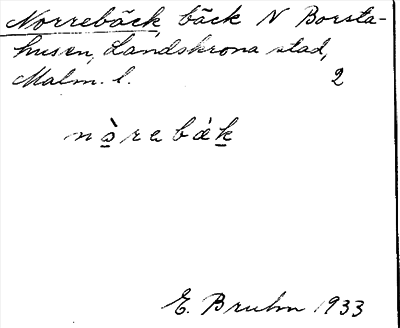 Norrebäck, bäck N Borsta-
husen, Landskrona stad,
Malm. l. 2
nò̱rebáḵ
E. Bruhn 1933